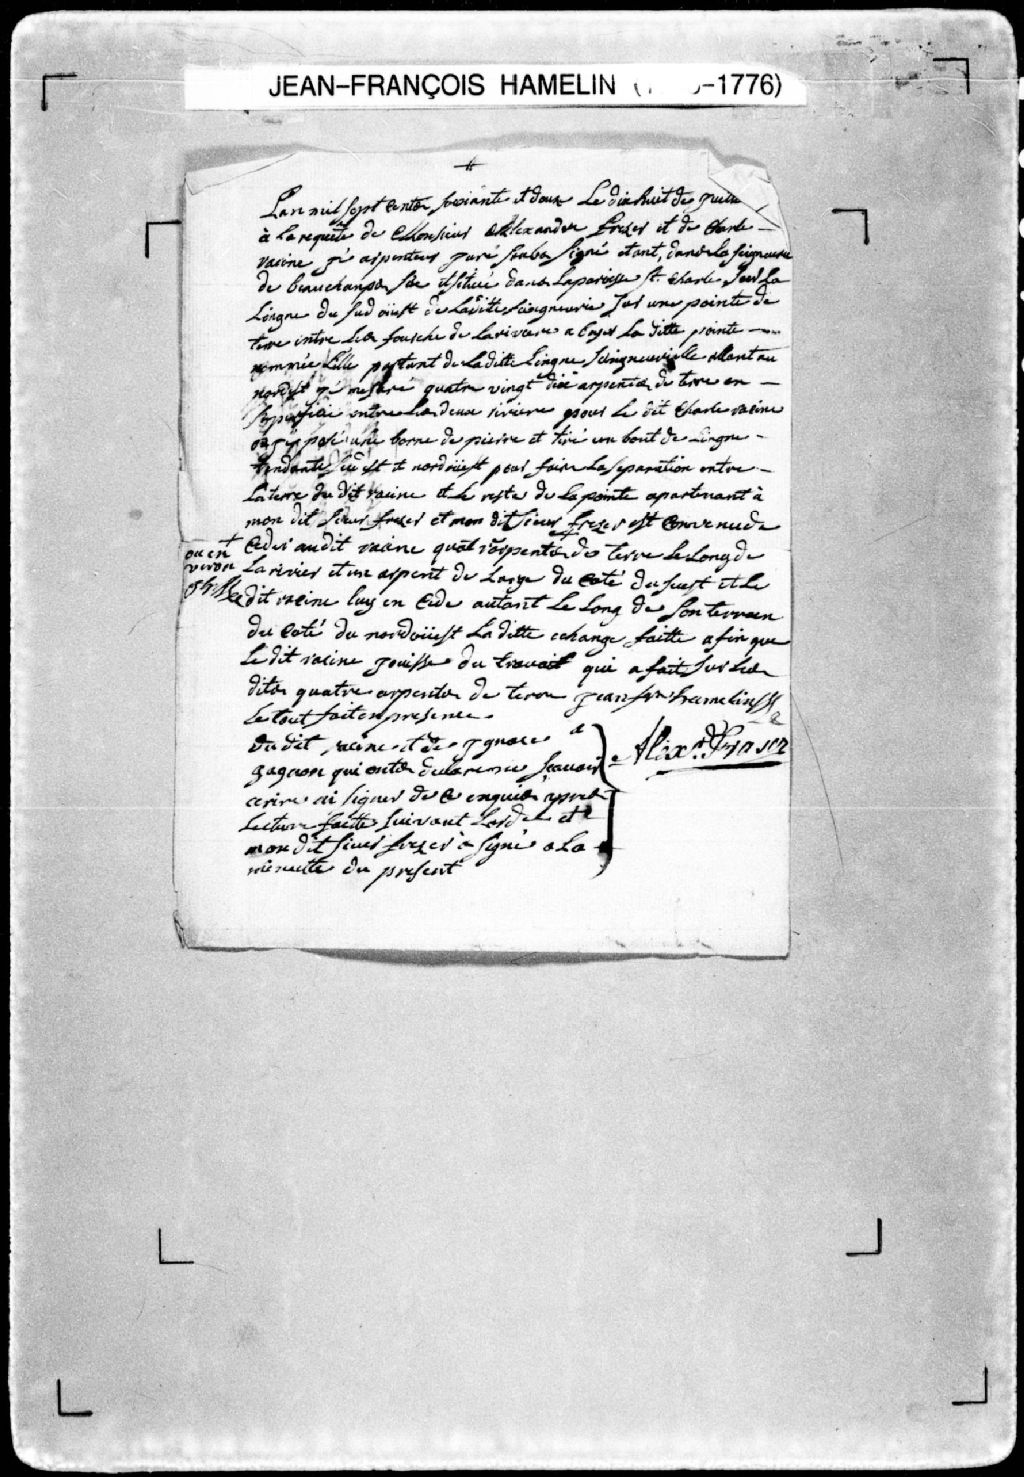 JEAN-FRANÇOIS HAMELIN ( -1776)
Lan mil sept cents soixante et douze Le dix huit de
à La requeste de Monsieur Allexander frezer et de Charle
racine arpenteur juré soubs Signé etant dans La seigneurie
de beauchamps et situé dans La paroisse st. Charle sur La
Lingne du sud oüest de Laditte seingneurie sur une pointe de
terre entre Les fousche de La riviere a boyer La ditte pointe
nommée Lille partant de La ditte Lingne seingneurialle allant au
nordest mesuré quatre vingt dix arpents de terre en
entre Les deux riviere pour Le dit Charle racine
posé une borne de pierre et tiré un bout de Lingne
sud est et nordoüest pour faire La separation entre
La terre du dit racine et Le reste de La pointe apartenant à
mon dit sieur frezer et mon dit sieur frezer est Convenu de
Ceder au dit racine quatre arpents de terre Le Long de
ou en
viron
La rivier et un arpent de Large du Coté du suest et Le
dit racine luy en Cede autant Le Long de son terrain
du Coté du nordoüest La ditte echange faitte afin que
Le dit racine jouisse du travail qui a fait sur Les
dits quatre arpents de terre jean frs hamelin
Le tout fait en presence
du dit racine et de
gagnon qui ont declaré ne scavoir
ecrire ni signer de Ce enquis apres
Lecture faitte suivant Lorde et
mon dit sieur frezer à signé a La
minutte du present
Alexr. Fraser